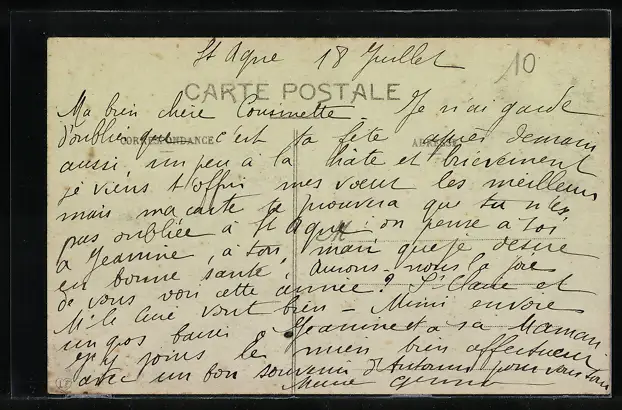 St Agne 18 Juillet
10
CARTE POSTALE
Ma bien chère Cousinette - Je n'ai garde
d'oublier que c'est ta fête après demain
CORRESPONDANCE
ADRESSE
aussi un peu à la hâte et brièvement
je viens t'offrir mes vœux les meilleurs
mais ma carte te prouvera que tu n'es
pas oubliée à St Agne; on pense à toi
M
à Jeanine, à ton mari que je désire
en bonne santé, aurons-nous la joie
de vous voir cette année? St Clare et
Mr le Curé vont bien - Mimi envoie
un gros baiser à Jeannine et à sa Maman
j'y joins le mien bien affectueux
avec un bon souvenir d'Antonin pour vous tous